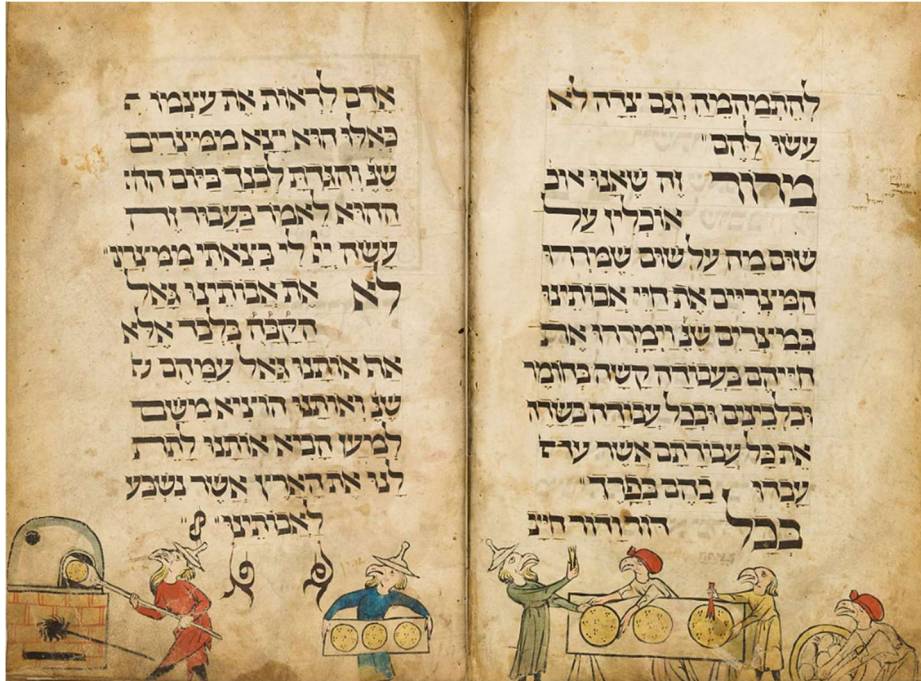 להתמהמה וגם צדה לא
עשו להם
מרור זה שאנו אוכ
אוכלין על
שום מה על שום שמררו
המצריים את חיי אבותינו
במצרים שנ וימררו את
חייהם בעבודה קשה בחומר
ובלבינים ובכל עבודה בשדה
את כל עבודתם אשר
עבדו בהם בפרך
בכל דור ודור חייב
אדם לראות את עצמו
כאלו הוא יצא ממצרים
שנ והגדת לבנך ביום הה
ההוא לאמר בעבור זה
עשה יי לי בצאתי ממצרים
לא את אבותינו גאל
הקבה בלבד אלא
את אותנו גאל עמהם
שנ ואותנו הוציא משם
למען הביא אותנו לתת
לנו את הארץ אשר נשבע
לאבותינו